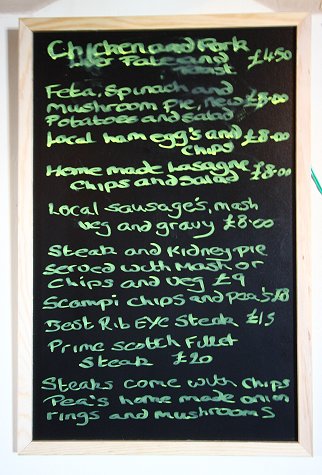 Chicken and Pork
Liver Pate and
Toast £4.50
Feta, spinach and
mushroom pie, new £8.00
Potatoes and salad
Local ham egg's and £8.00
chips
Home made Lasagne £8.00
chips and salad
Local sausage's, mash
veg and gravy £8.00
Steak and Kidney pie
served with Mash or
chips and veg £9
Scampi chips and pea's £8
Best Rib EYE Steak £15
Prime Scotch Fillet
Steak £20
Steaks come with chips
Pea's home made onion
rings and mushroomS